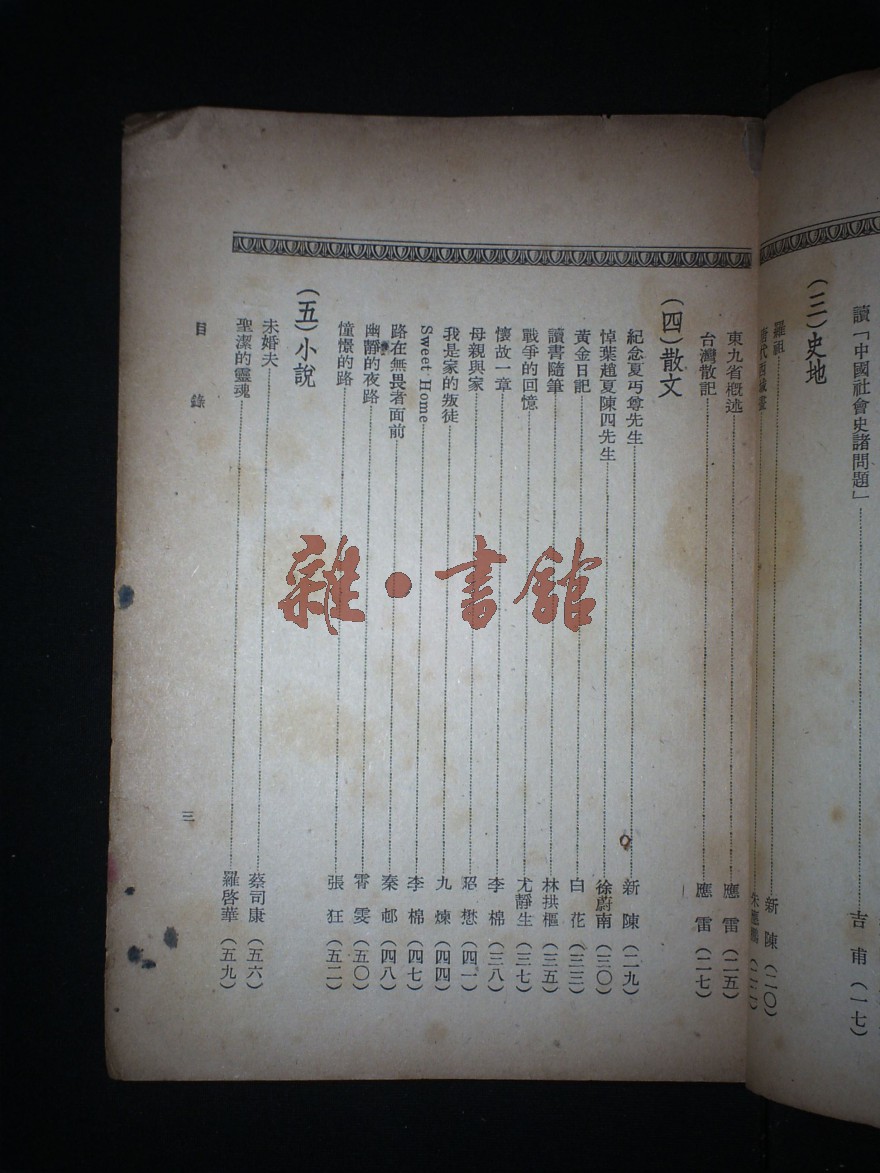 讀「中國社會史諸問題」 吉甫(一七)
(三)史地
羅祖 新陳(二〇)
唐代西域 朱
東九省概述 應雷(二五)
台灣散記 應雷(二七)
(四)散文
紀念夏丏尊先生 新陳(二九)
悼葉趙夏陳四先生 徐蔚南(三〇)
黃金日記 白花(三三)
讀書隨筆 林拱樞(三五)
戰爭的回憶 尤靜生(三七)
懷故一章 李棉(三八)
母親與家 懋(四一)
我是家的叛徒 九煉(四四)
Sweet Home 李棉(四七)
路在無畏者面前 秦邨(四八)
幽靜的夜路 霄雯(五〇)
憧憬的路 張狂(五二)
(五)小說
未婚夫 蔡司康(五六)
聖潔的靈魂 羅啓華(五九)
目錄
三
雜·書館